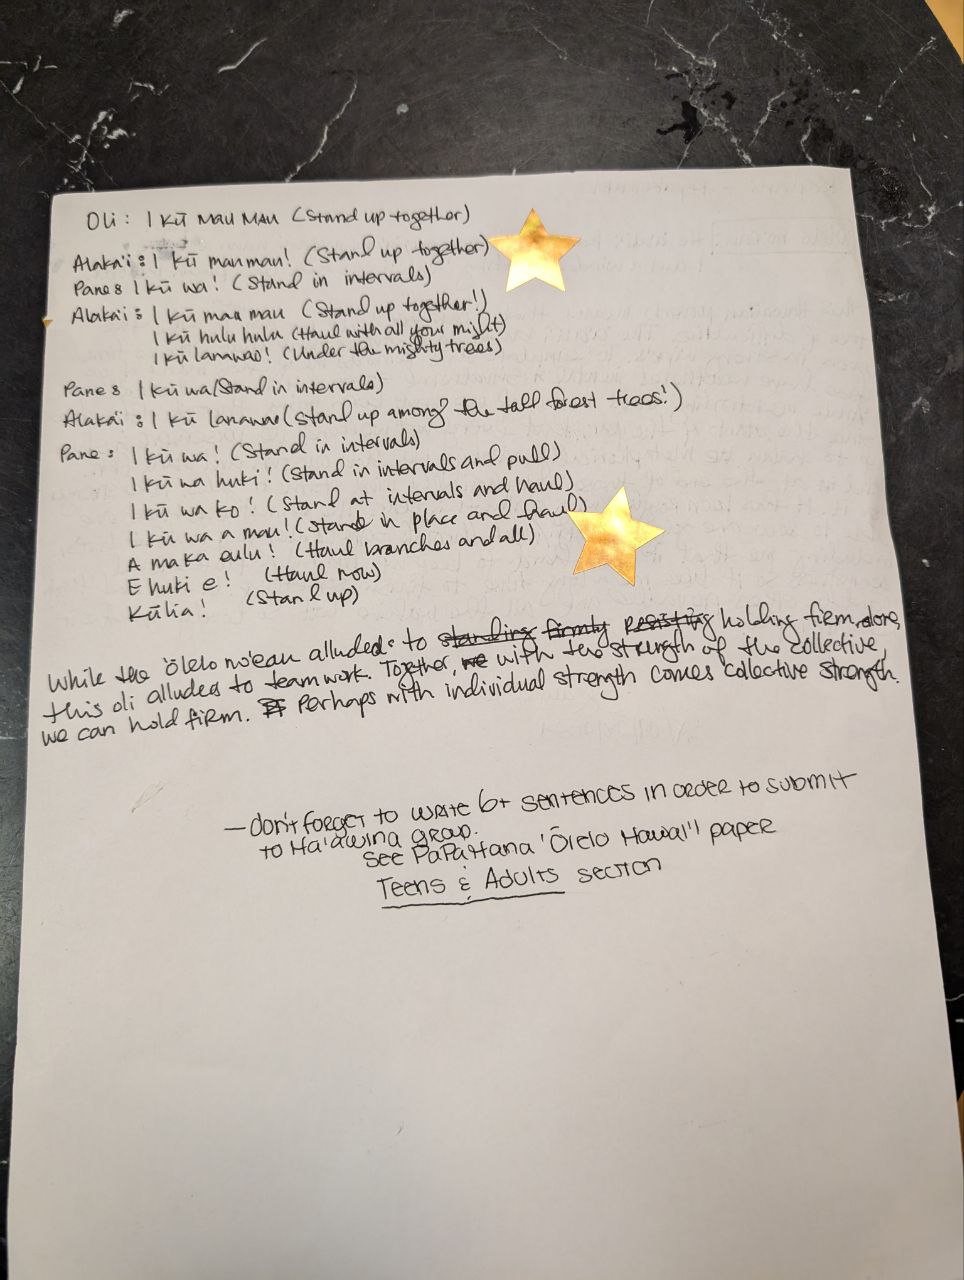 Oli: I KŪ MAU MAU (Stand up together)
Alaka'i: I kū maumau! (Stand up together)
Pane: I kū wa! (Stand in intervals)
Alaka'i: I kū mau mau (Stand up together!)
I kū hulu hulu (Haul with all your might)
I kū lanawao! (Under the mighty trees)
Pane: I kū wa (Stand in intervals)
Alaka'i: I kū lanawao (Stand up among the tall forest trees!)
Pane: I kū wa! (Stand in intervals)
I kū wa huki! (Stand in intervals and pull)
I kū wa kō! (Stand at intervals and haul)
I kū wa a mau! (Stand in place and haul)
A maka eulu! (Haul branches and all)
E huki e! (Haul now)
Kūlia! (Stand up)
While the 'ōlelo no'eau alluded to standing firmly resisting holding firm, alone,
this oli alludes to teamwork. Together, we with the strength of the collective,
we can hold firm. Perhaps with individual strength comes collective strength.
— don't forget to write 6+ sentences in order to submit
to Ha'awina group.
See PaPaHana 'Ōlelo Hawai'i paper
Teens & Adults section